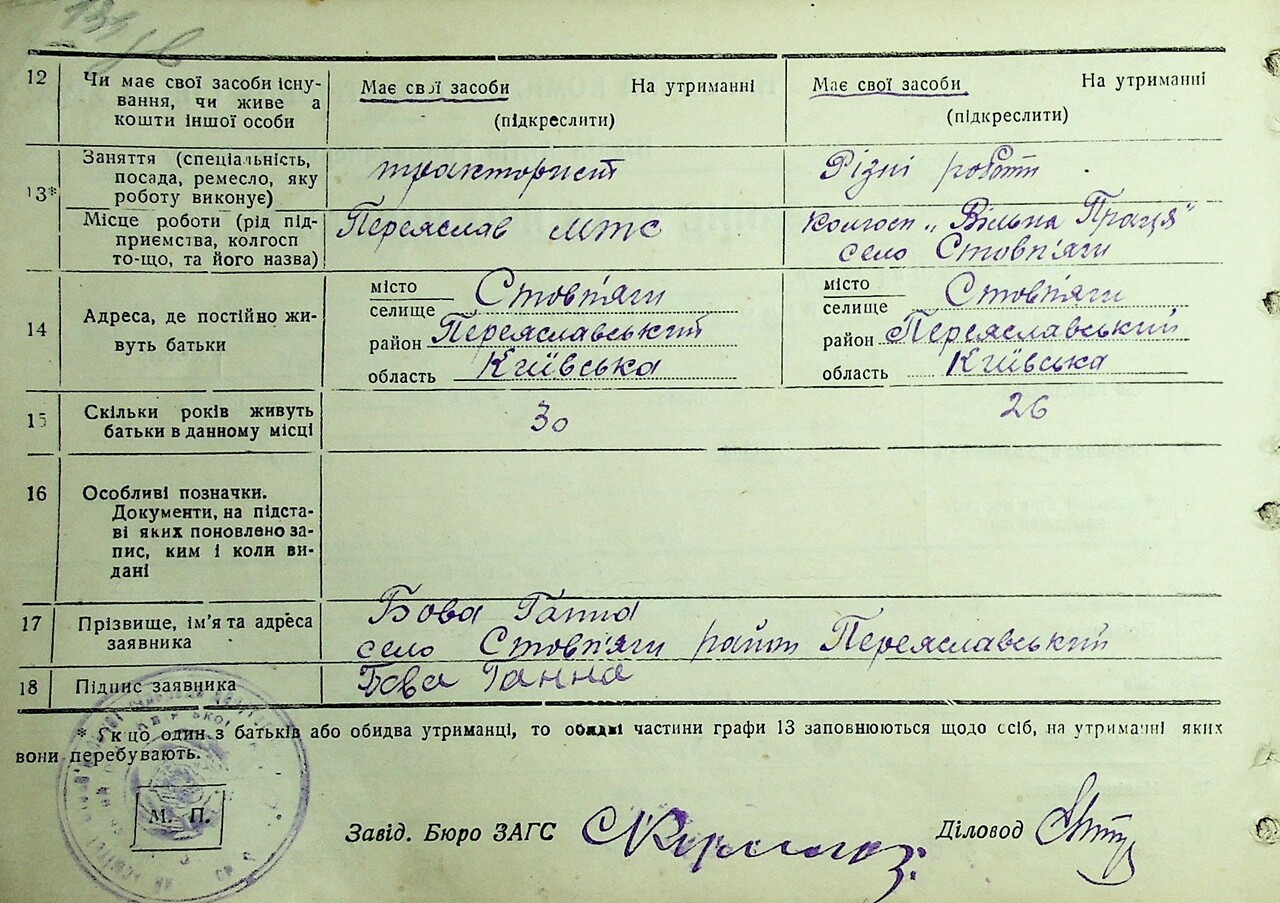 12 Чи має свої засоби існу-
вання, чи живе а
кошти іншої особи
Має свої засоби На утриманні
(підкреслити)
Має свої засоби На утриманні
(підкреслити)
13* Заняття (спеціальність,
посада, ремесло, яку
роботу виконує)
тракторист
Різні роботи
Місце роботи (рід під-
приємства, колгосп
то-що, та його назва)
Переяслав МТС
Колгосп „Вільна Праця"
село Стовп'яги
14 Адреса, де постійно жи-
вуть батьки
місто
селище Стовп'яги
район Переяславський
область Київська
місто
селище Стовп'яги
район Переяславський
область Київська
15 Скільки років живуть
батьки в данному місці
30
26
16 Особливі позначки.
Документи, на підста-
ві яких поновлено за-
пис, ким і коли ви-
дані
17 Прізвище, ім'я та адреса
заявника
Бова Ганна
село Стовп'яги район Переяславський
18 Підпис заявника
Бова Ганна
* Якщо один з батьків або обидва утриманці, то обидві частини графи 13 заповнюються щодо осіб, на утриманні яких
вони перебувають.
М. П.
Завід. Бюро ЗАГС
Діловод